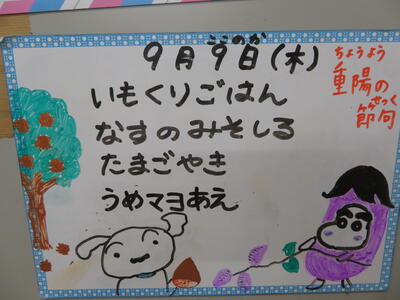 ここのか
9月9日(木)
ちょうよう
重陽の
せっく
節句
いもくりごはん
なすのみそしる
たまごやき
うめマヨあえ